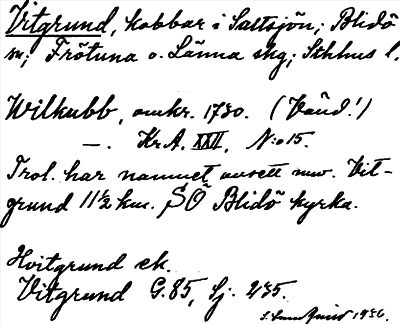 Vitgrund, kobbar i Saltsjön; Blidö
sn; Frötuna o. Länna skg; Sthlms l.
Wilkubb, omkr. 1730. (Vänd!)
—. Kr.A. XXII, N:o 15.
Trol. har namnet avsett nuv. Vit-
grund 11½ km. SÖ Blidö kyrka.
Hvitgrund ek.
Vitgrund G.85, Sj. 235.
1930.